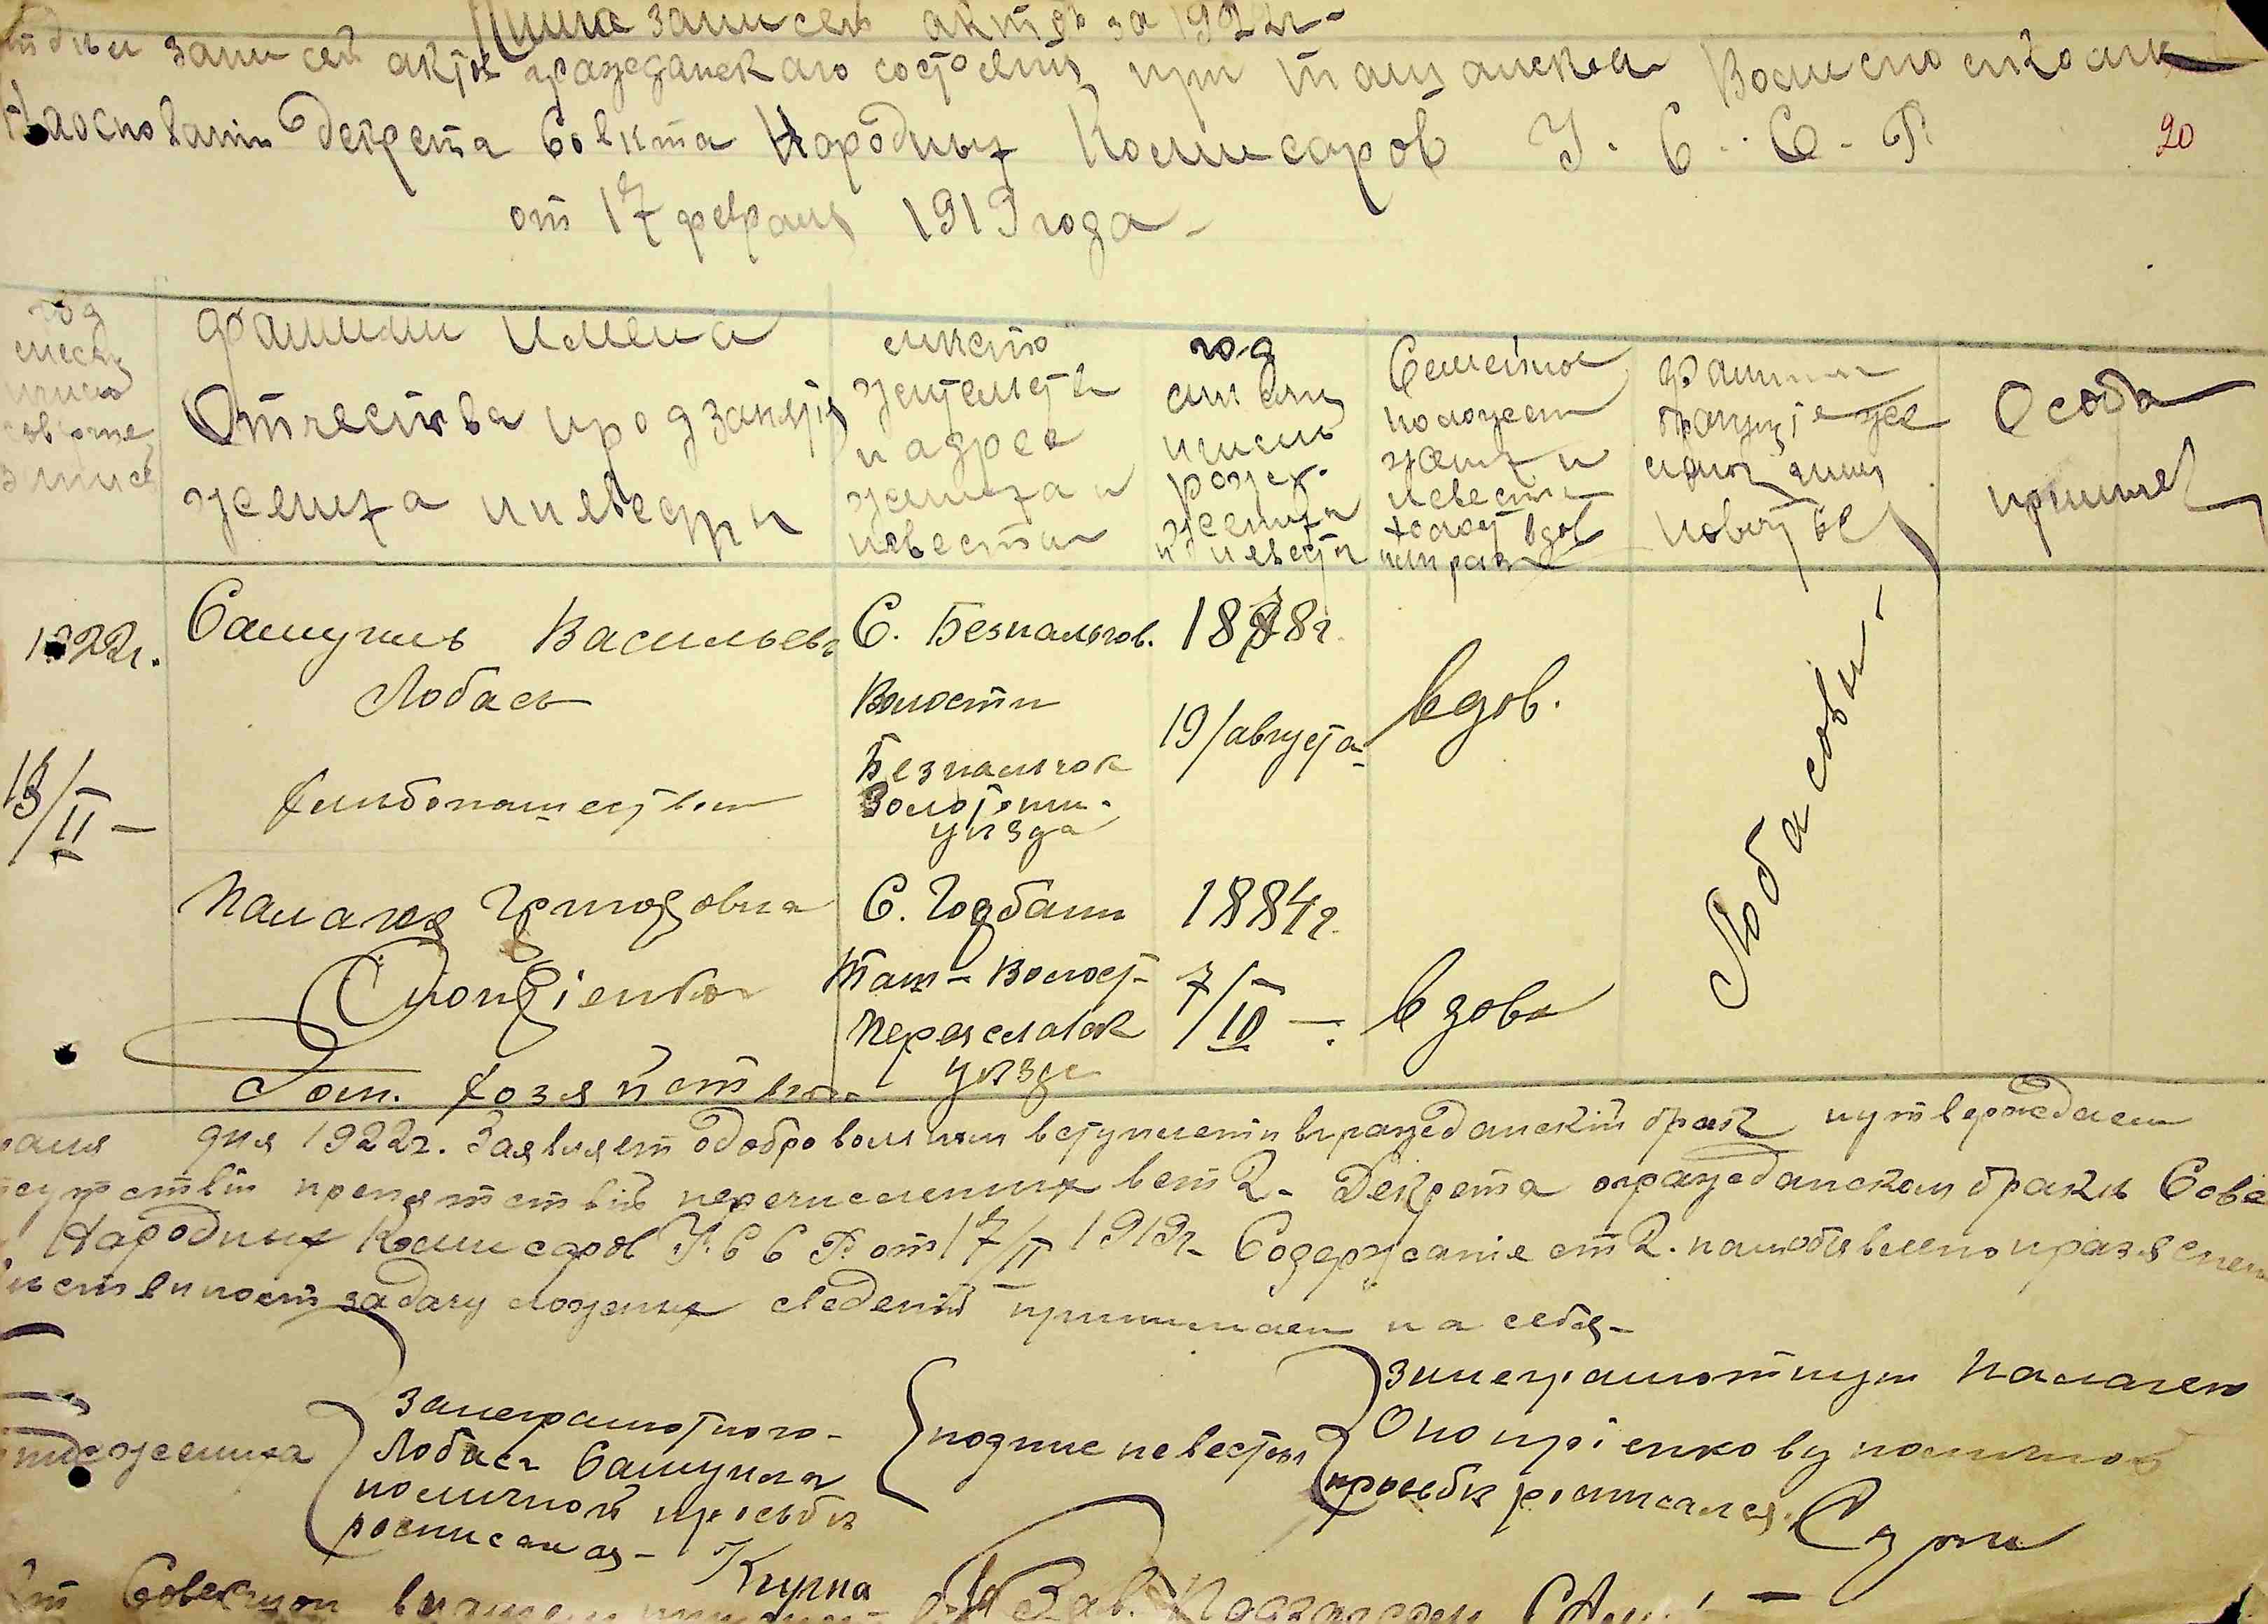 Книга записей актов за 1922 г-
записей актов гражданскаго состоянія при Ташанском Волисполкоме
На основаніи Декрета Совѣта Народных Комисаров У. С. С. Р.
20
от 17 февраля 1919 года-
год месяц число совершен записи
фамилии имена Отчества и род занятія жениха и невесты
место жительств и адрес жениха и невесты
год месяц число рожд. жениха и невесты
Семейное положен жениха и невесты холост вдов или разв
фамилии новобр
Особ примеч
1922г.
13/II —
Самуил Васильев
Лобась
хлебопашеством
С. Безпальчов.
Волости
Безпальчов
Золотонш.
уѣзда
1878г.
19/августа-
вдов.
Лобасовы-
Палагея
Онопріенкова
Дом. хозяйством
С. Гордбани
Таш- Волост-
Переяславск
уѣзда
1884г.
7/III —
вдова
дня 1922г. Заявляем о добровольном вступленіи в гражданскій брак и утверждаем
препятствій перечисленных в ст 2- Декрета о гражданском бракѣ Сове
Народных Комисаров У. С С Р. от 17/II 1919г- Содержаніе ст 2. нам объявлено и разяснен
за дачу ложных сведеній принимаем на себя-
жениха
За неграмотного-
Лобаса Самуила
по личной просьбѣ
росписался- Кирпа
подпис невесты
За неграмотную Палагею
Онопріенкову по личной
просьбѣ росписался.
Зав. Подотделом